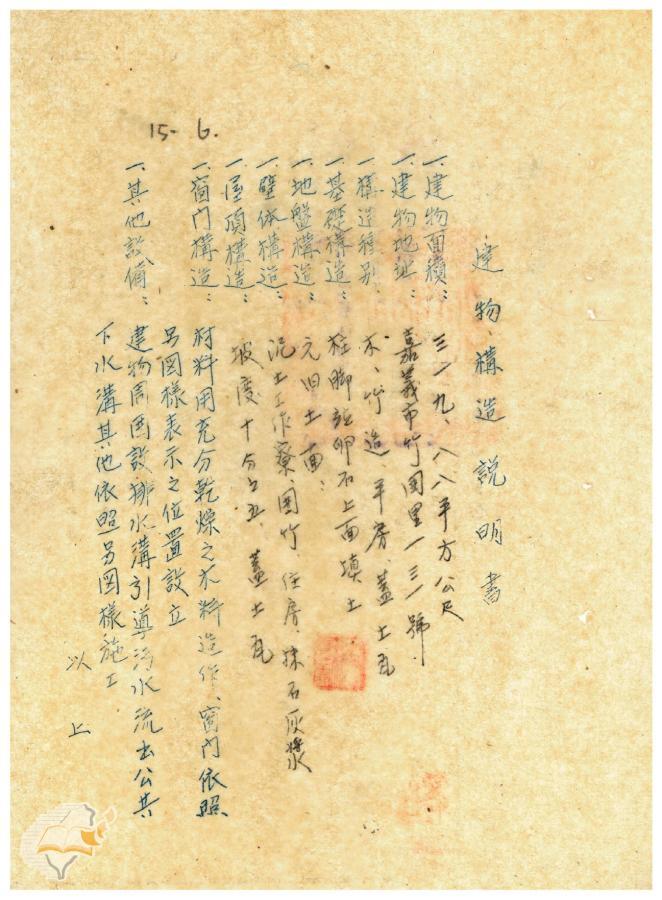 建物構造説明書
一、建物面積：三一九、八八平方公尺
一、建物地址：嘉義市竹围里一三一號
一、構造種別：木、竹造、平房、蓋土瓦
一、基礎構造：柱脚 卵石上面填土
一、地盤構造：元旧土面
一、壁体構造：泥土工作寮、囲竹、住房、抹石灰漿
一、屋頂構造：坡度十分之五、蓋土瓦
一、窗门構造：材料用充分乾燥之木料造作、窗门依照
另図樣表示之位置設立
一、其他設備：建物周囲設排水溝引導污水流出公共
下水溝其他依照另図樣施工
以上
15-6.